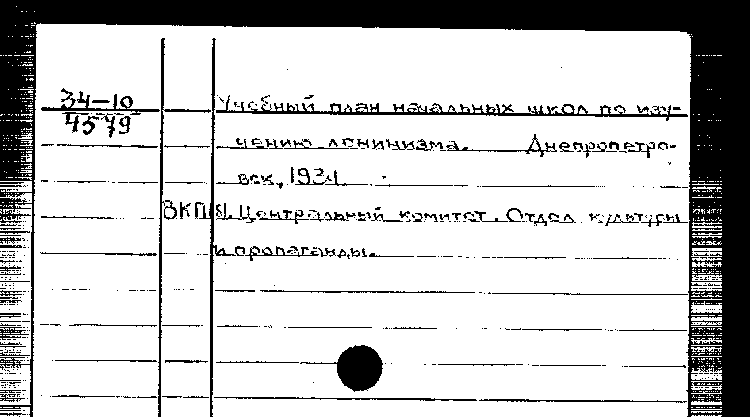 34-10
4579
Учебный план начальных школ по изу-
чению ленинизма. Днепропетро-
вск, 1934.
ВКП(б). Центральный комитет. Отдел культуры
и пропаганды.